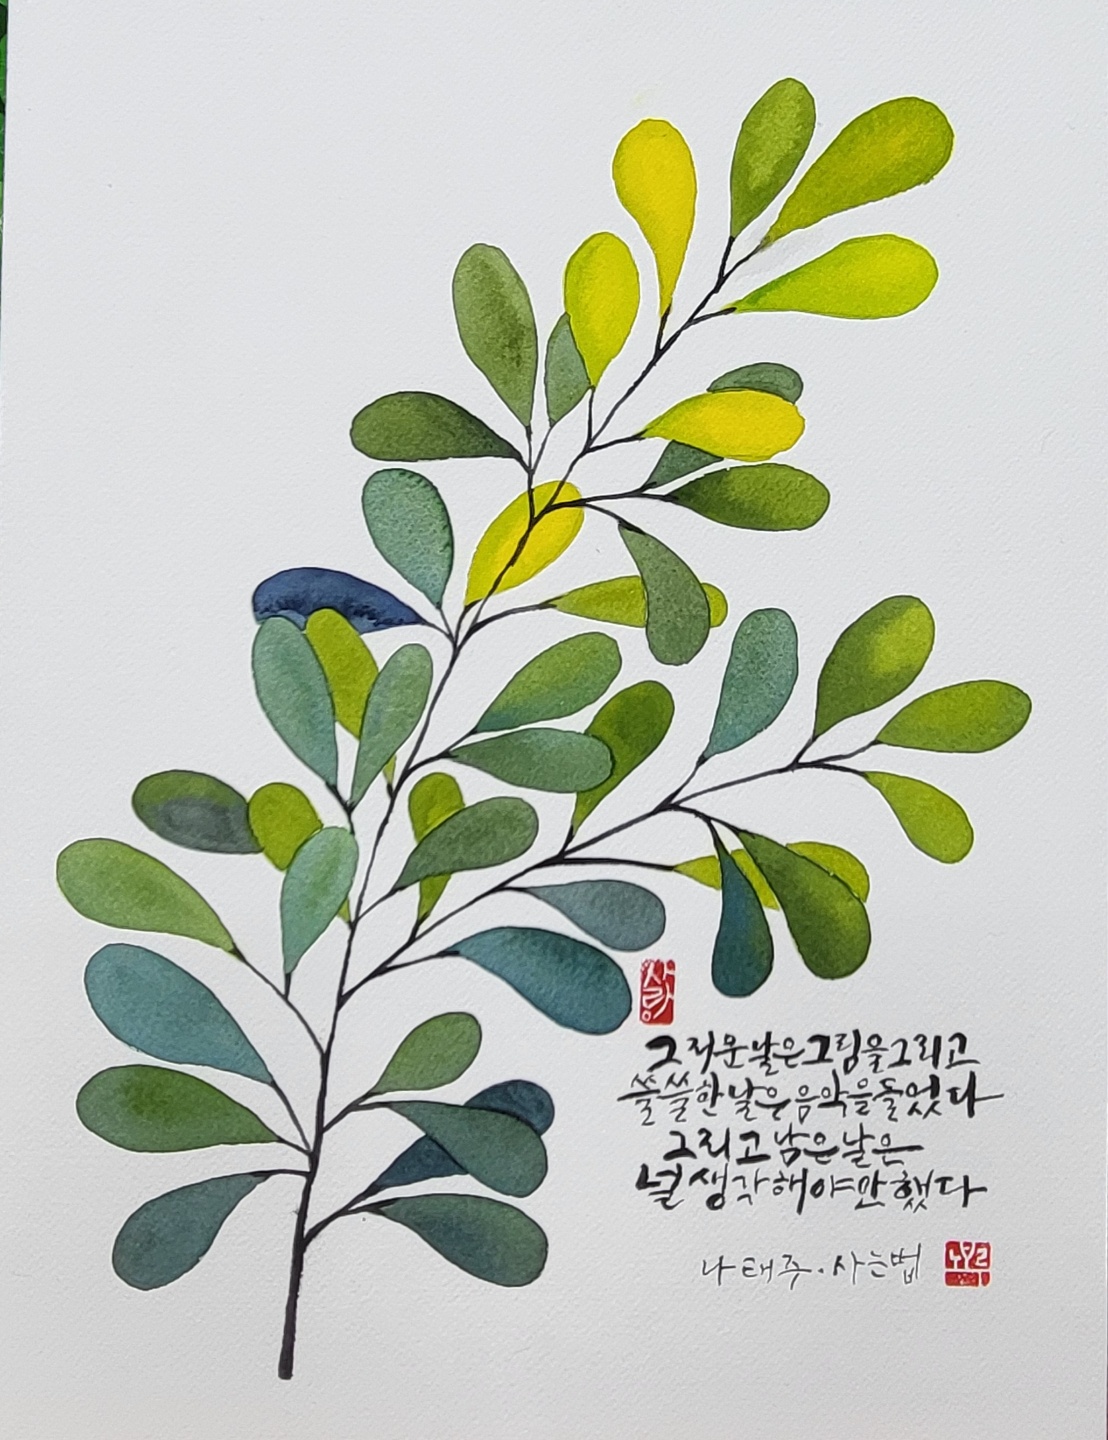 사랑
그리운 날은 그림을 그리고
쓸쓸한 날은 음악을 들었다
그리고 남은 날은
널 생각해야만 했다
나태주 · 사는 법